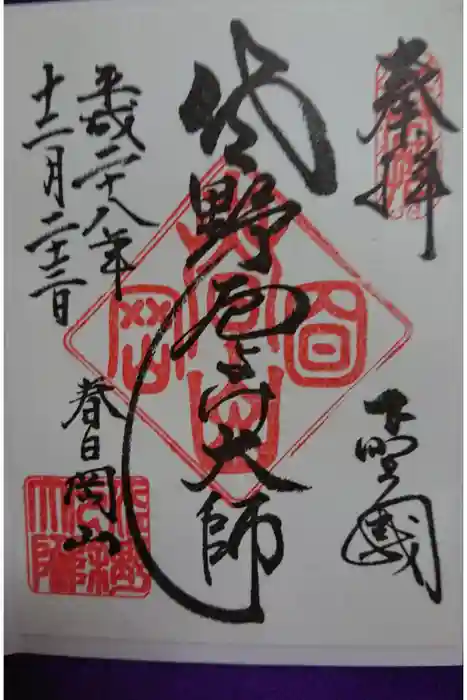 奉拝
下野國
佐野厄よけ大師
平成二十八年
十二月二十三日
春日岡山